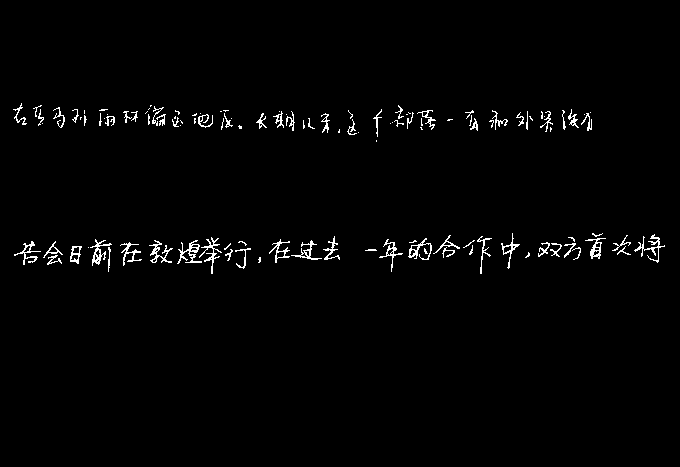 在亚马孙雨林偏远地区。长期以来,这个部落一直和外界没有
告会日前在敦煌举行,在过去一年的合作中,双方首次将